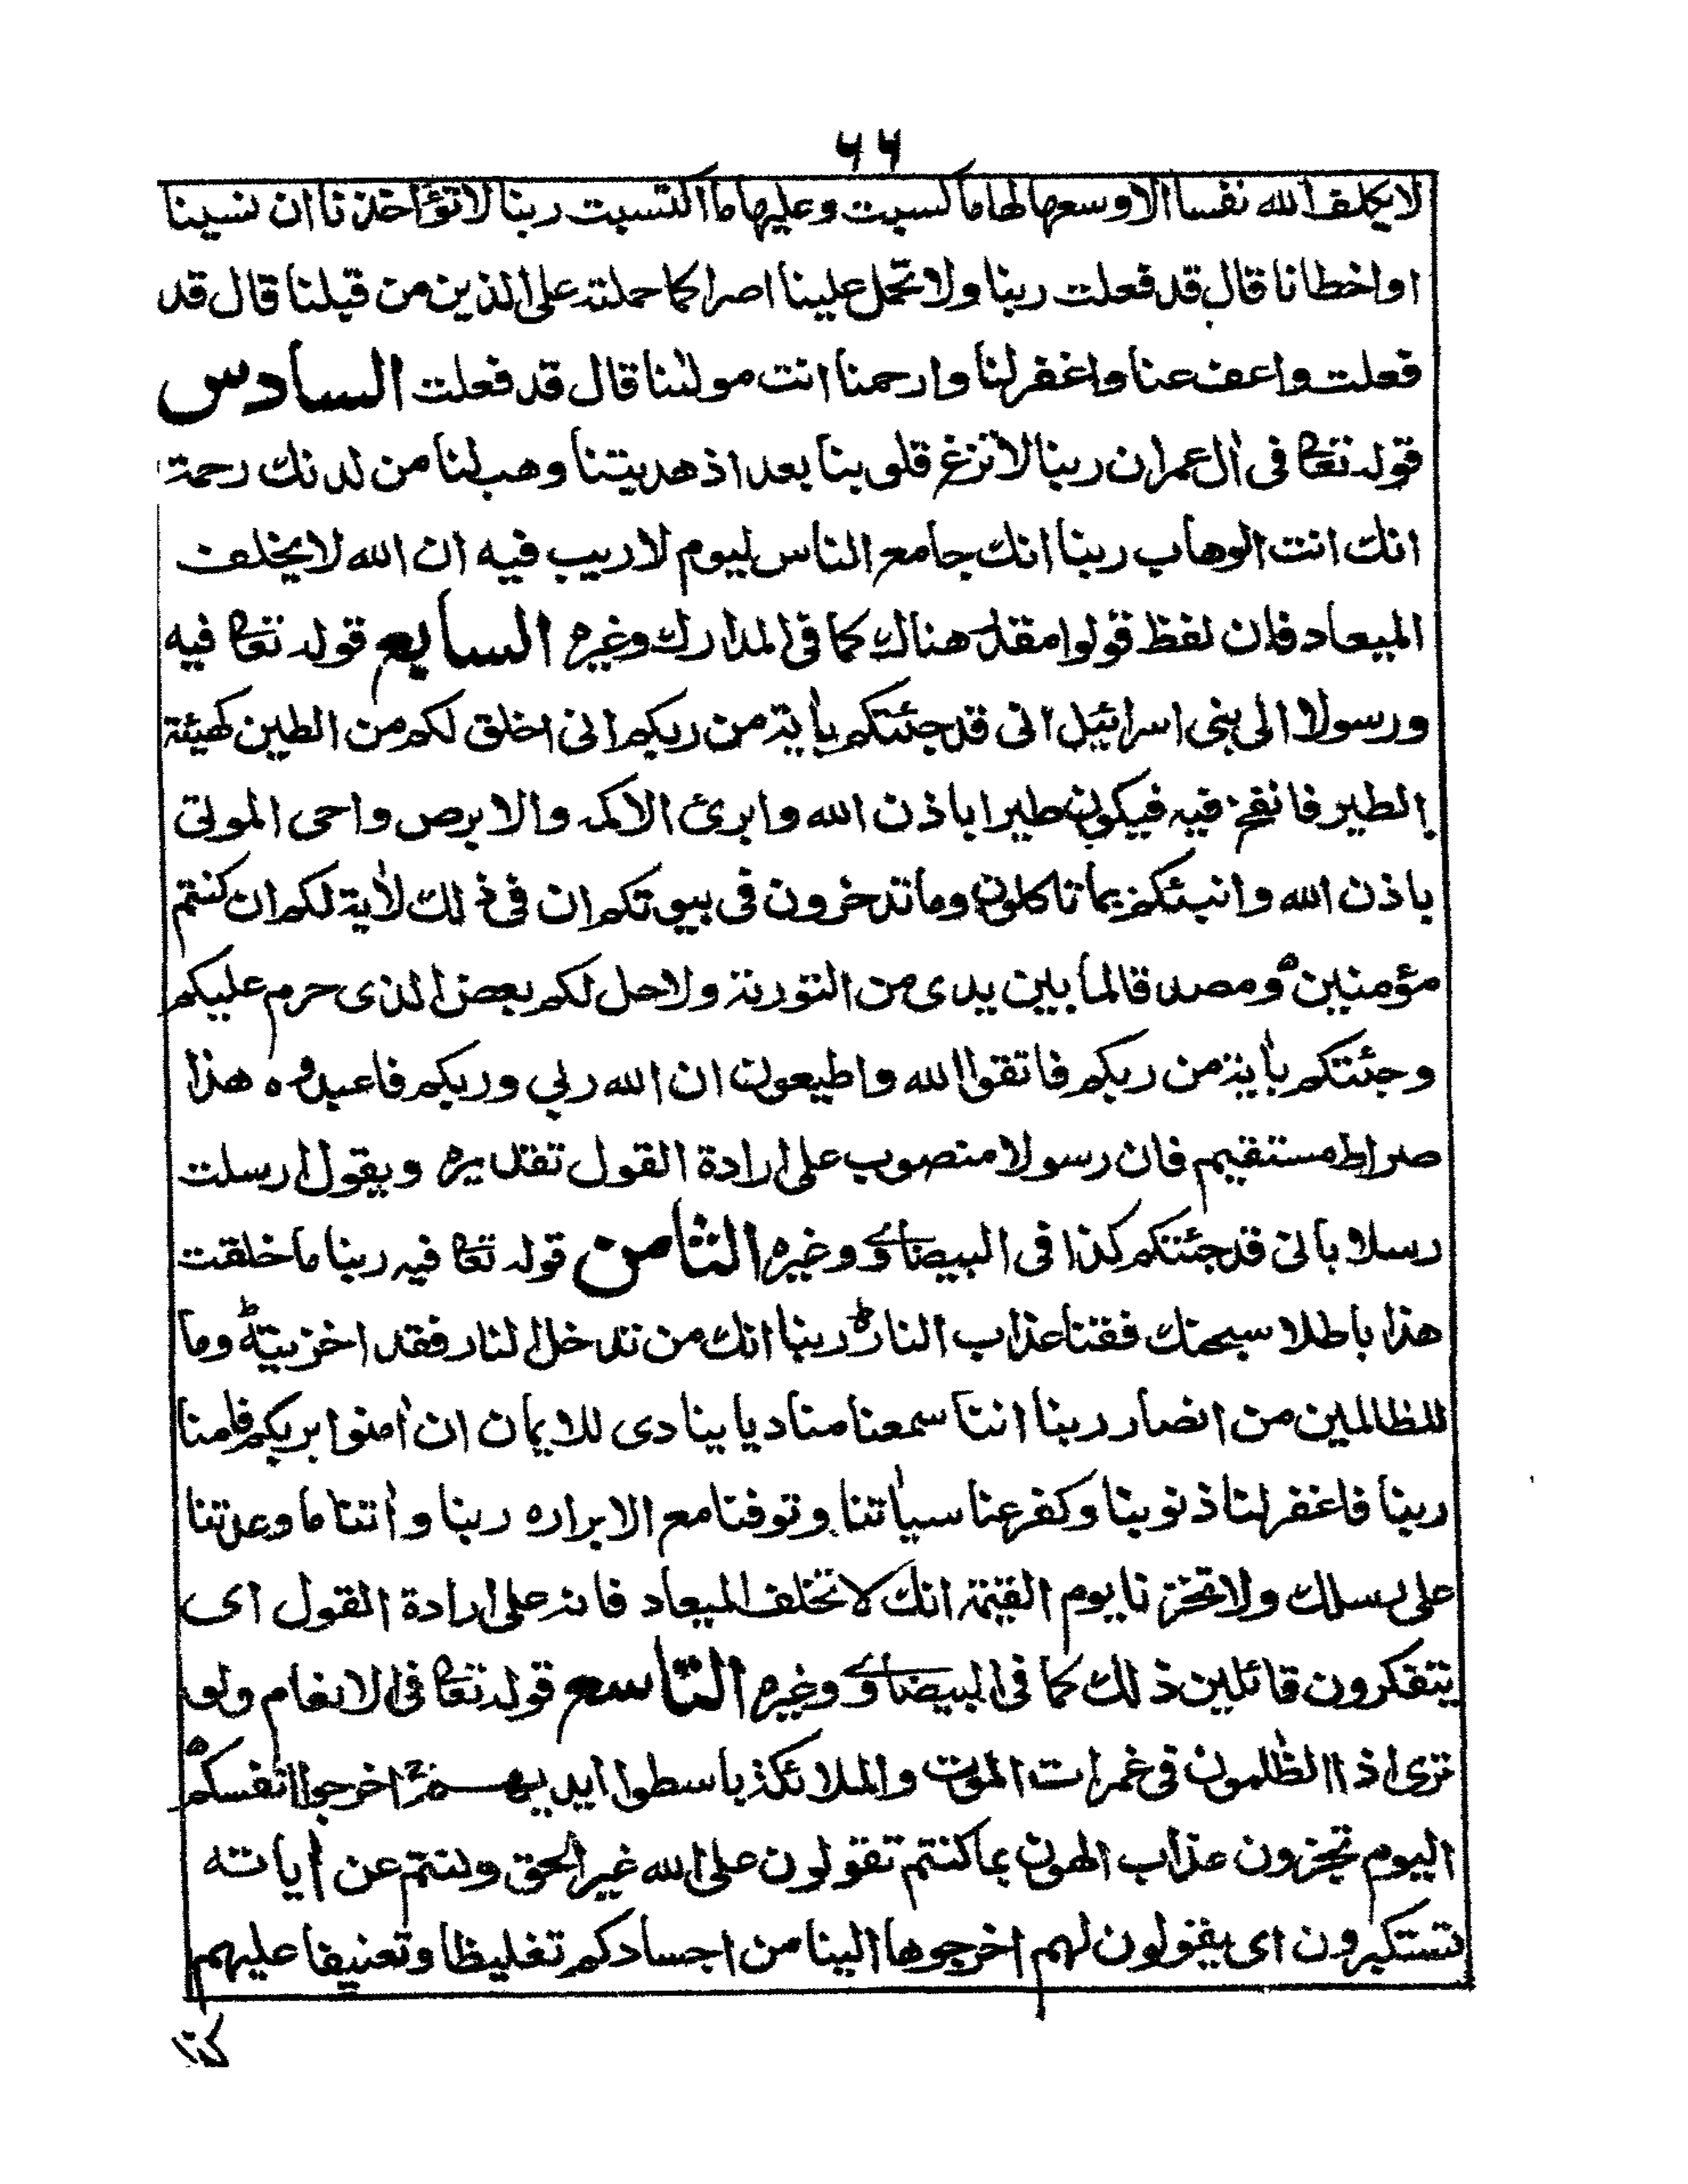 ٦٦
لا يكلف الله نفسا الا وسعها لها ما كسبت وعليها ما اكتسبت ربنا لا تؤاخذنا ان نسينا
او اخطانا قال قد فعلت ربنا ولا تحمل علينا اصرا كما حملته على الذين من قبلنا قال قد
فعلت واعف عنا واغفر لنا وارحمنا انت مولىنا قال قد فعلت السادس
قوله تعا فى اٰل عمران ربنا لا تزغ قلوبنا بعد اذ هديتنا وهب لنا من لدنك رحمة
انك انت الوهاب ربنا انك جامع الناس ليوم لا ريب فيه ان الله لا يخلف
الميعاد فان لفظ قولوا مقدر هناك كما فى المدارك وغيره السابع قوله تعا فيه
ورسولا الى بنى اسرائيل انى قد جئتكم باٰية من ربكم انى اخلق لكم من الطين كهيئة
الطير فانفخ فيه فيكون طيرا باذن الله وابرئ الاكمه والابرص واحى الموتى
باذن الله وانبئكم بما تاكلون وما تدخرون فى بيوتكم ان فى ذلك لاٰية لكم ان كنتم
مؤمنين ومصدقا لما بين يدى من التورىة ولاحل لكم بعض الذى حرم عليكم
وجئتكم باٰية من ربكم فاتقوا الله واطيعون ان الله ربي وربكم فاعبدوه هذا
صراط مستقيم فان رسولا منصوب على ارادة القول تقديره ويقول ارسلت
رسلا بانى قد جئتكم كذا فى البيضاوے وغيره الثامن قوله تعا فيه ربنا ما خلقت
هذا باطلا سبحنك فقنا عذاب النار ربنا انك من تدخل النار فقد اخزيته وما
للظالمين من انصار ربنا اننا سمعنا مناديا ينادى للايمان ان اٰمنوا بربكم فاٰمنا
ربنا فاغفر لنا ذنوبنا وكفر عنا سياٰتنا وتوفنا مع الابرار ه ربنا واٰتنا ما وعدتنا
على رسلك ولا تخزنا يوم القيٰمة انك لا تخلف الميعاد فانه على ارادة القول اى
يتفكرون قائلين ذلك كما فى البيضاوے وغيره التاسع قوله تعا فى الانعام ولو
ترى اذ االظٰلمون فى غمرات الموت والملائكة باسطوا ايديهم اخرجوا انفسكم
اليوم تجزون عذاب الهون بما كنتم تقولون على الله غير الحق وكنتم عن اٰياته
تستكبرون اى يقولون لهم اخرجوها الينا من اجسادكم تغليظا وتعنيفا عليهم
كذا